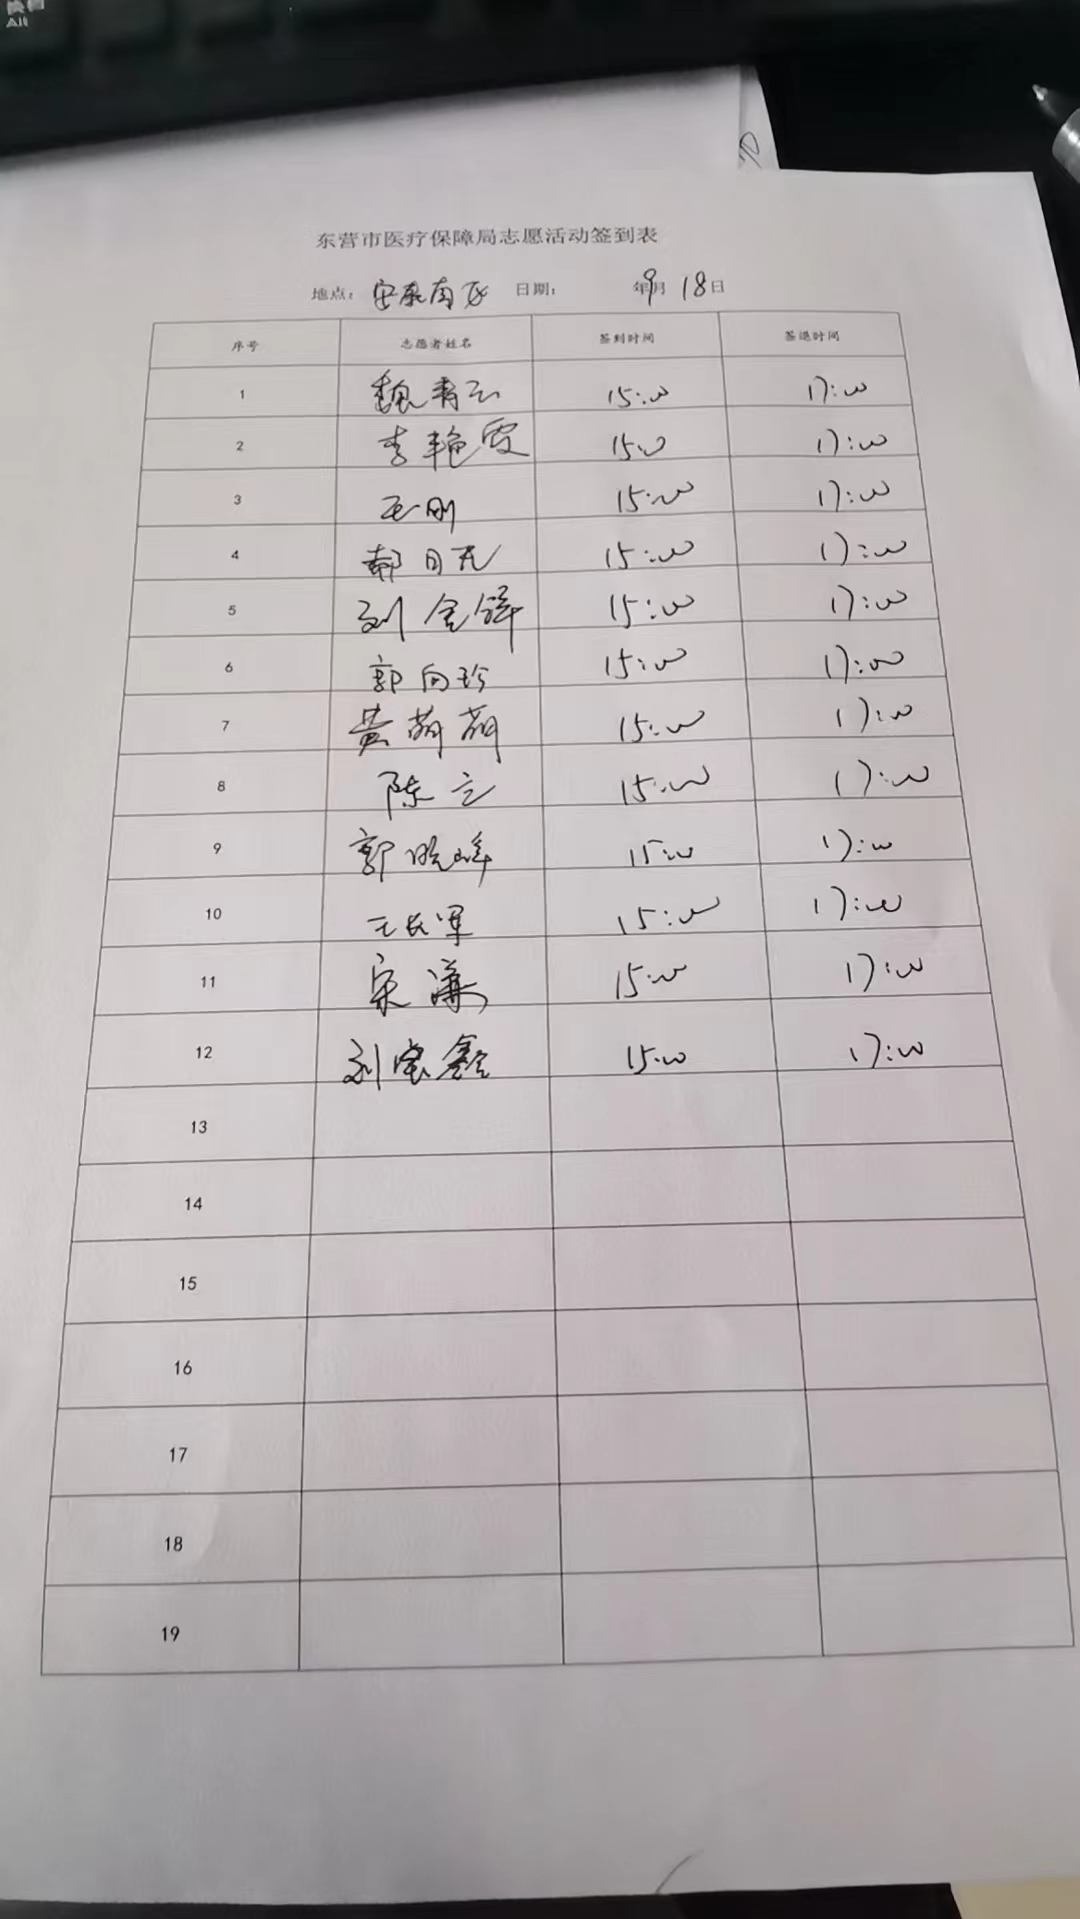 Alt
东营市医疗保障局志愿活动签到表
地点：安泰南区 日期： 年9月18日
序号 志愿者姓名 签到时间 签退时间
1 魏青云 15:00 17:00
2 李艳雯 15:00 17:00
3 王刚 15:00 17:00
4 郝日 15:00 17:00
5 刘金锋 15:00 17:00
6 郭向珍 15:00 17:00
7 黄萌萌 15:00 17:00
8 陈立 15:00 17:00
9 郭晓峰 15:00 17:00
10 王长军 15:00 17:00
11 宋谦 15:00 17:00
12 刘宝鑫 15:00 17:00
13
14
15
16
17
18
19